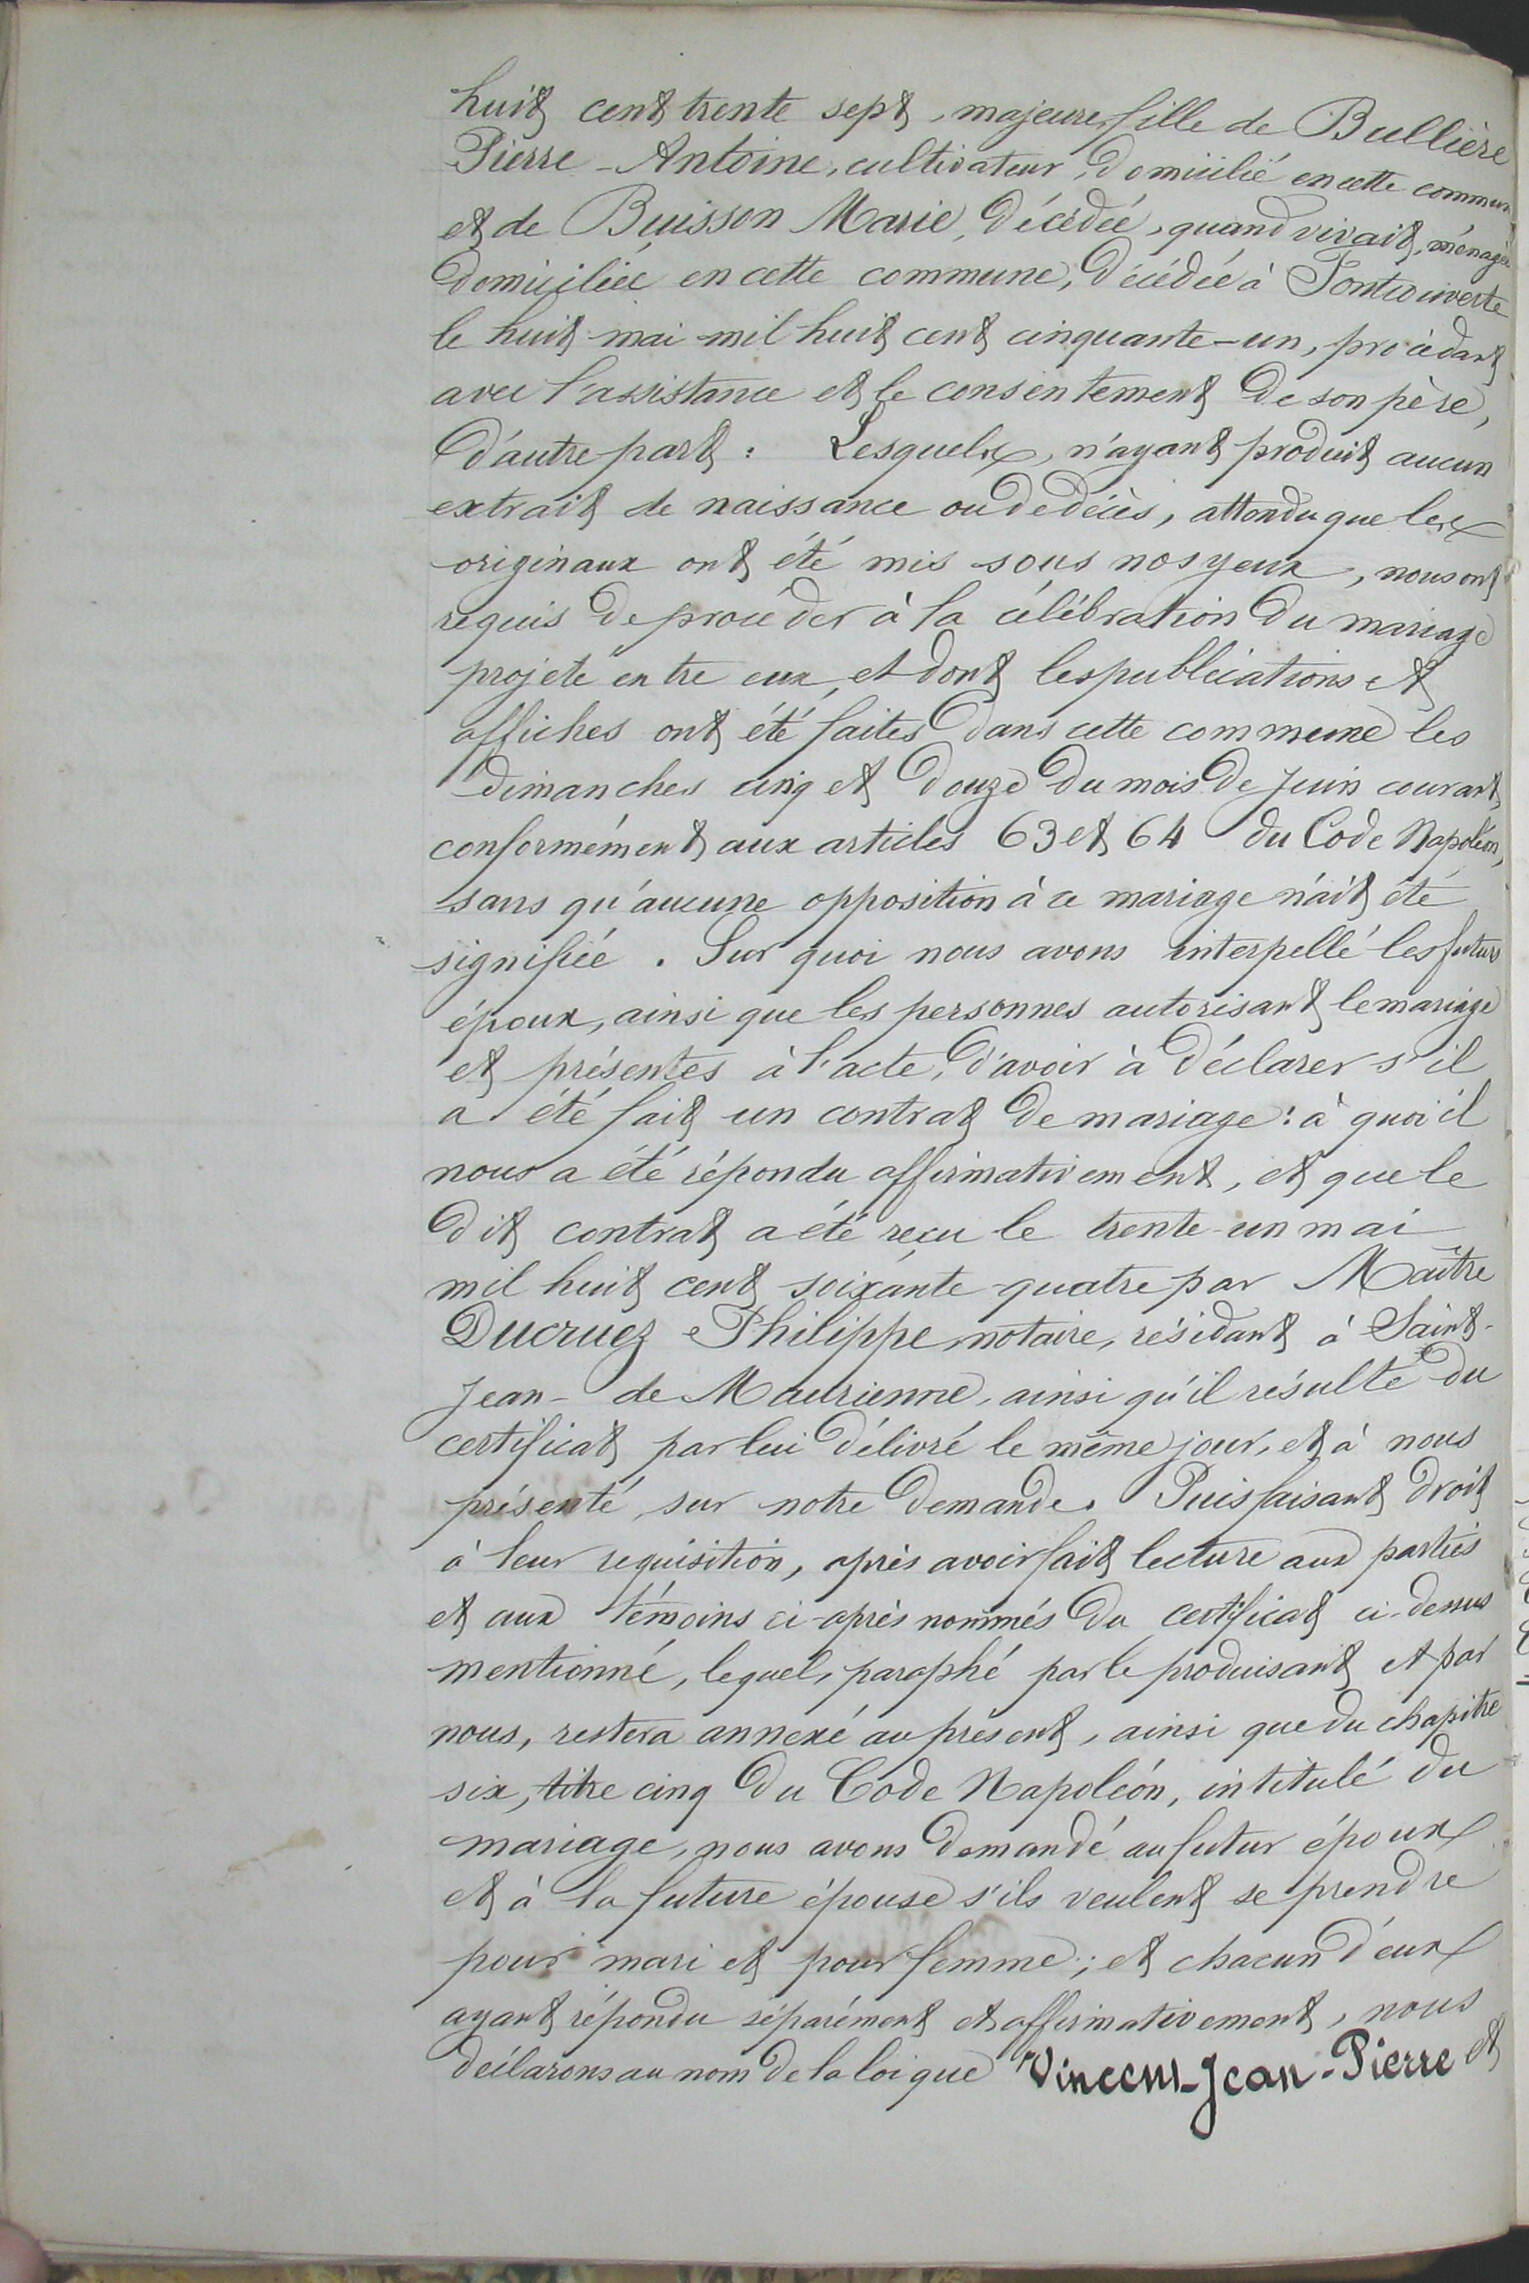 huit cent trente sept, majeure, fille de Bullière
Pierre-Antoine, cultivateur, domicilié en cette commune
et de Buisson Marie, décédée, quand vivait, ménagère
domiciliée en cette commune, décédée à Fontcouverte
le huit mai mil huit cent cinquante-un, procédant
avec l'assistance et le consentement de son père,
d'autre part : Lesquels, n'ayant produit aucun
extrait de naissance ou de décès, attendu que les
originaux ont été mis sous nos yeux, nous ont
requis de procéder à la célébration du mariage
projeté entre eux, et dont les publications et
affiches ont été faites dans cette commune les
dimanches cinq et douze du mois de Juin courant,
conformément aux articles 63 et 64 du Code Napoléon,
sans qu'aucune opposition à ce mariage n'ait été
signifiée. Sur quoi nous avons interpellé les futurs
époux, ainsi que les personnes autorisant le mariage
et présentes à l'acte, d'avoir à déclarer s'il
a été fait un contrat de mariage : à quoi il
nous a été répondu affirmativement, et que le
dit contrat a été reçu le trente-un mai
mil huit cent soixante-quatre par Maître
Ducruez Philippe, notaire, résidant à Saint-
Jean-de Maurienne, ainsi qu'il résulte du
certificat par lui délivré le même jour, et à nous
présenté, sur notre demande. Puis faisant droit
à leur requisition, après avoir fait lecture aux parties
et aux témoins ci-après nommés du certificat ci-dessus
mentionné, lequel, paraphé par le produisant et par
nous, restera annexé au présent, ainsi que du chapitre
six, titre cinq du Code Napoléon, intitulé du
mariage, nous avons demandé au futur époux
et à la future épouse s'ils veulent se prendre
pour mari et pour femme ; et chacun d'eux
ayant répondu séparément et affirmativement, nous
déclarons au nom de la loi que Vincent Jean-Pierre et